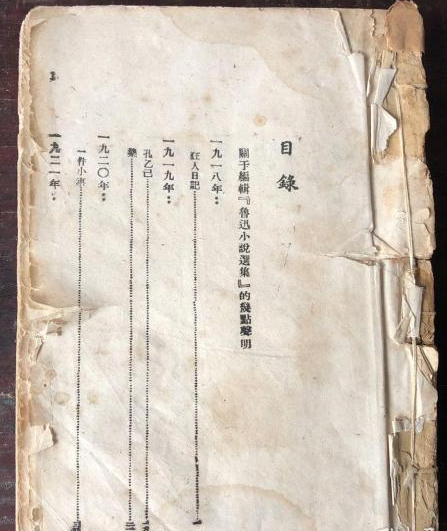 目錄
關于編輯『魯迅小說選集』的幾點聲明
一九一八年：
狂人日記……一
一九一九年：
孔乙己……
藥……
一九二〇年：
一件小事……
一九二一年：